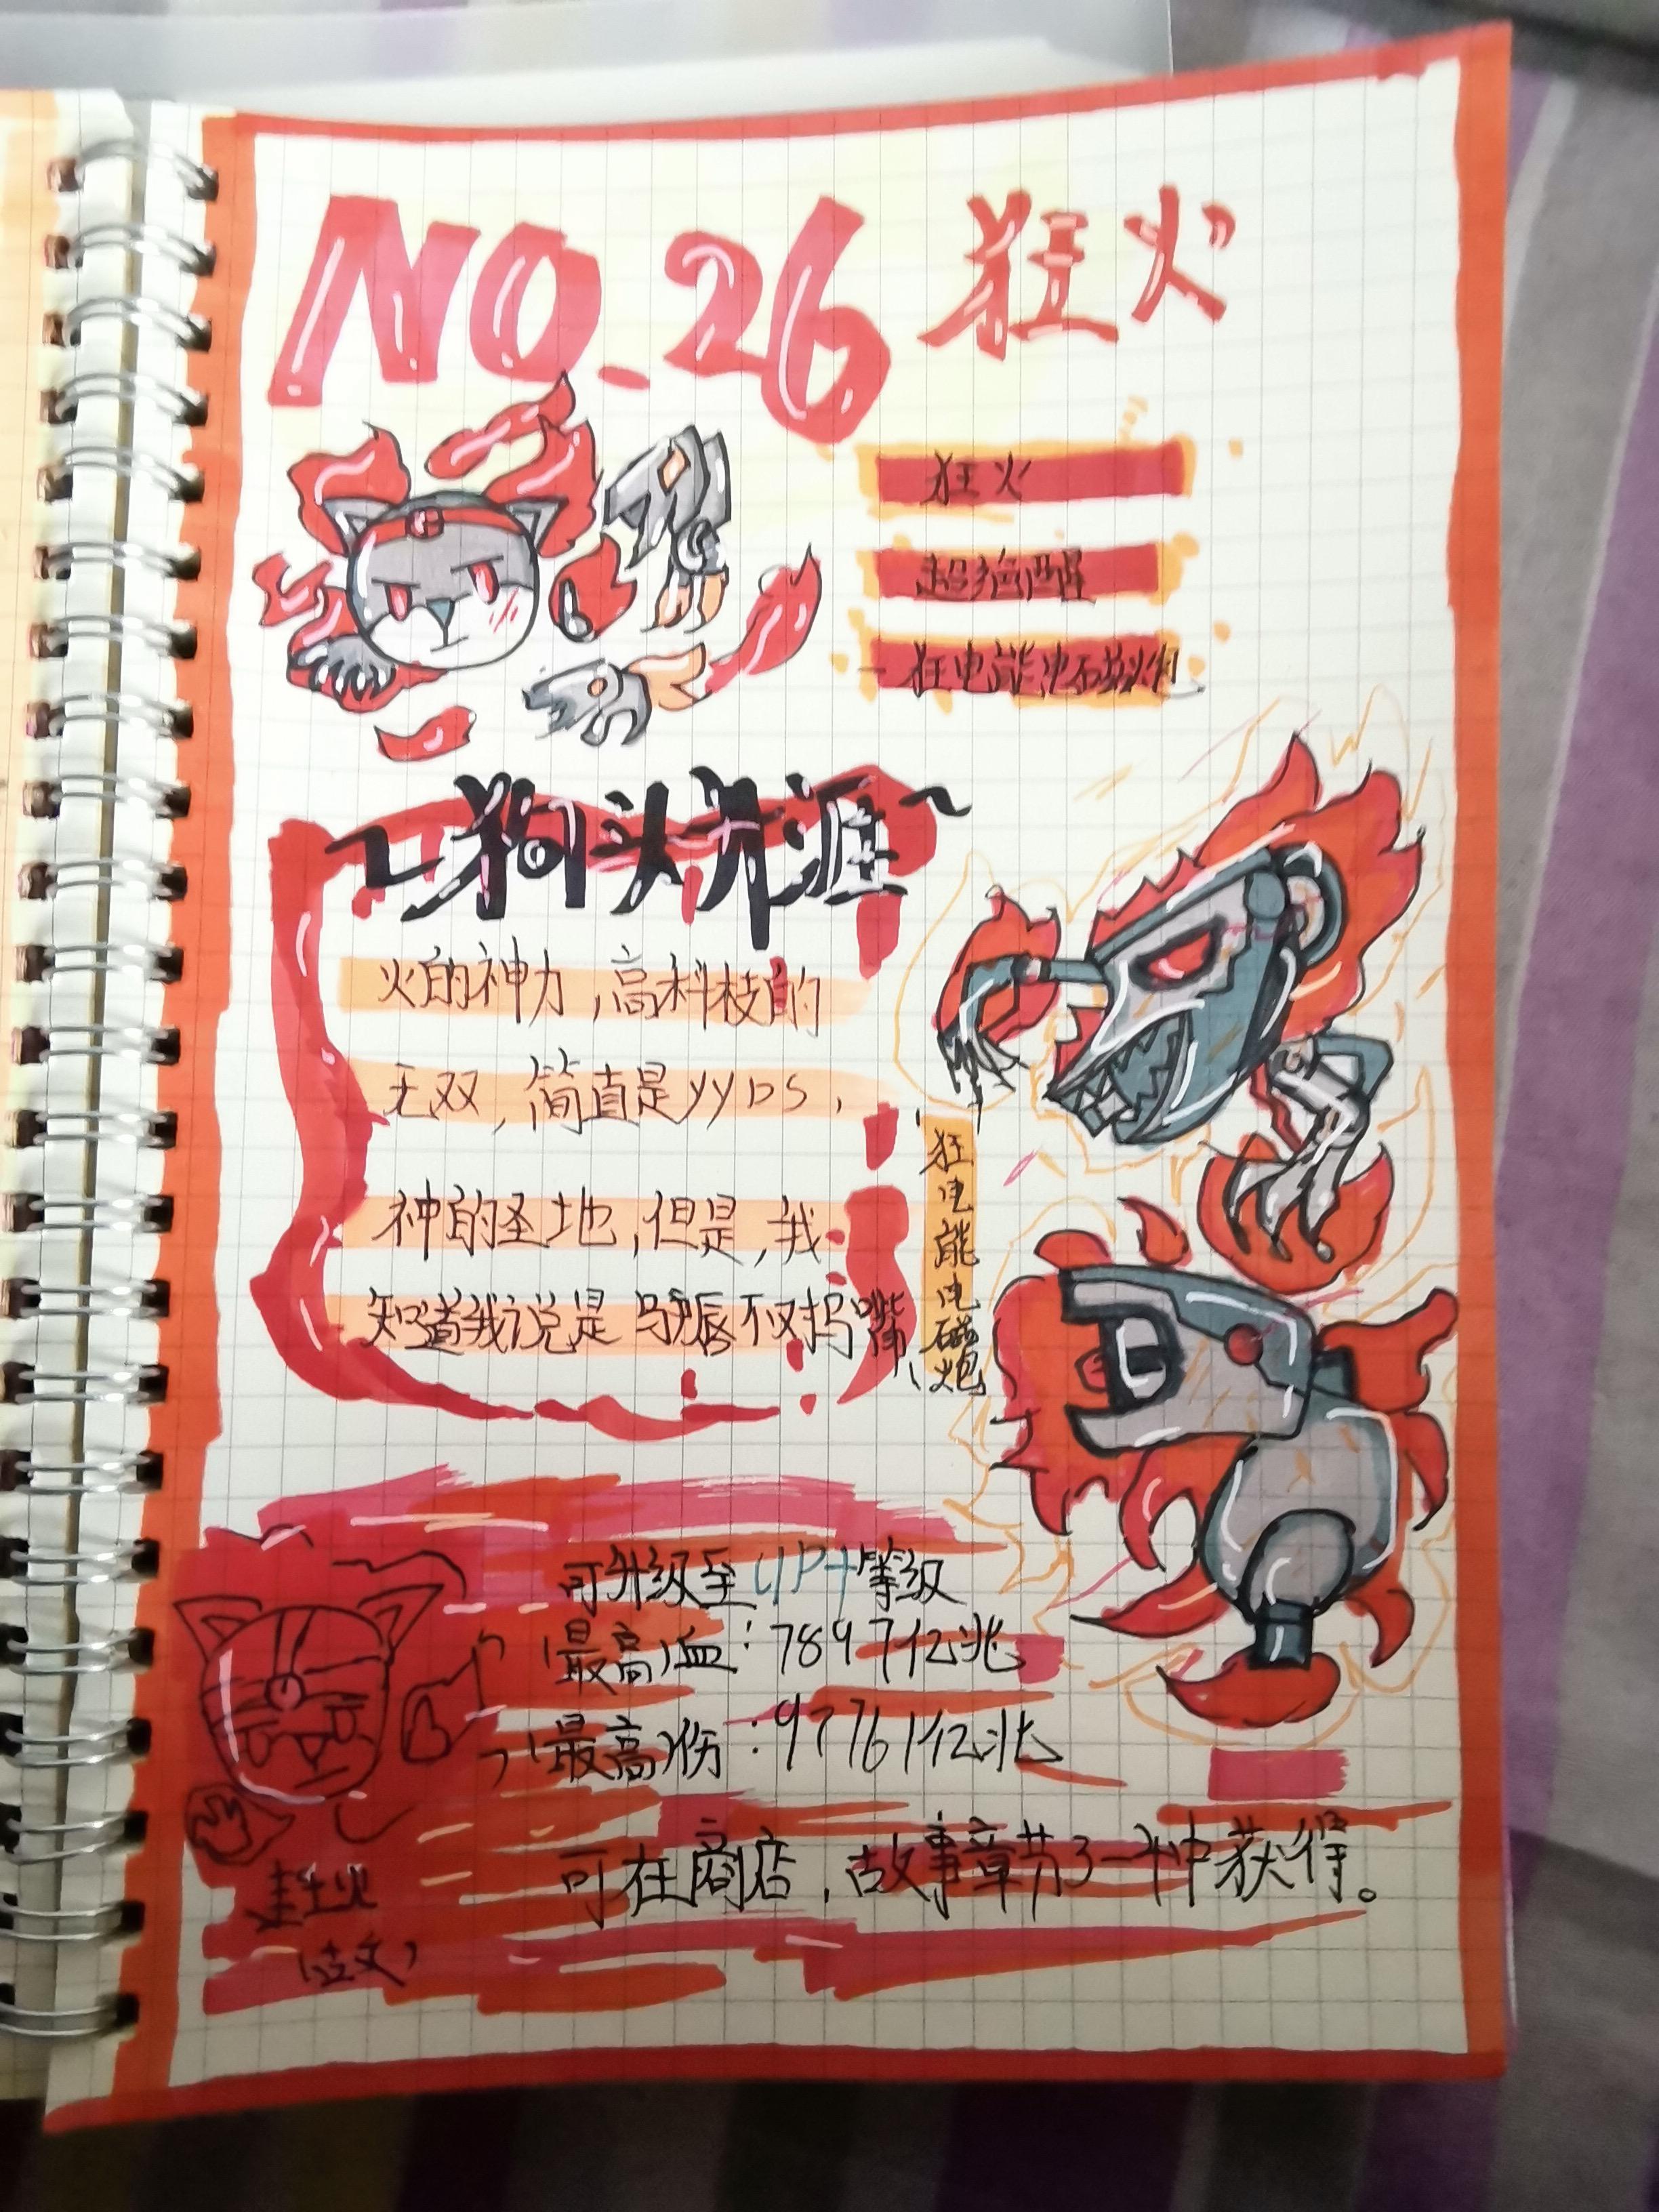 NO.26 狂火
狂火
超绝醒
狂电能电磁炮
狗头无涯
火的神力,高科技的
无双,简直是yyDS,
神的圣地,但是,我
知道我说是
狂电能电磁炮
可升级至UP+等级
最高血:7897亿兆
最高伤:9776亿兆
可在商店,故事章节3-4中获得。